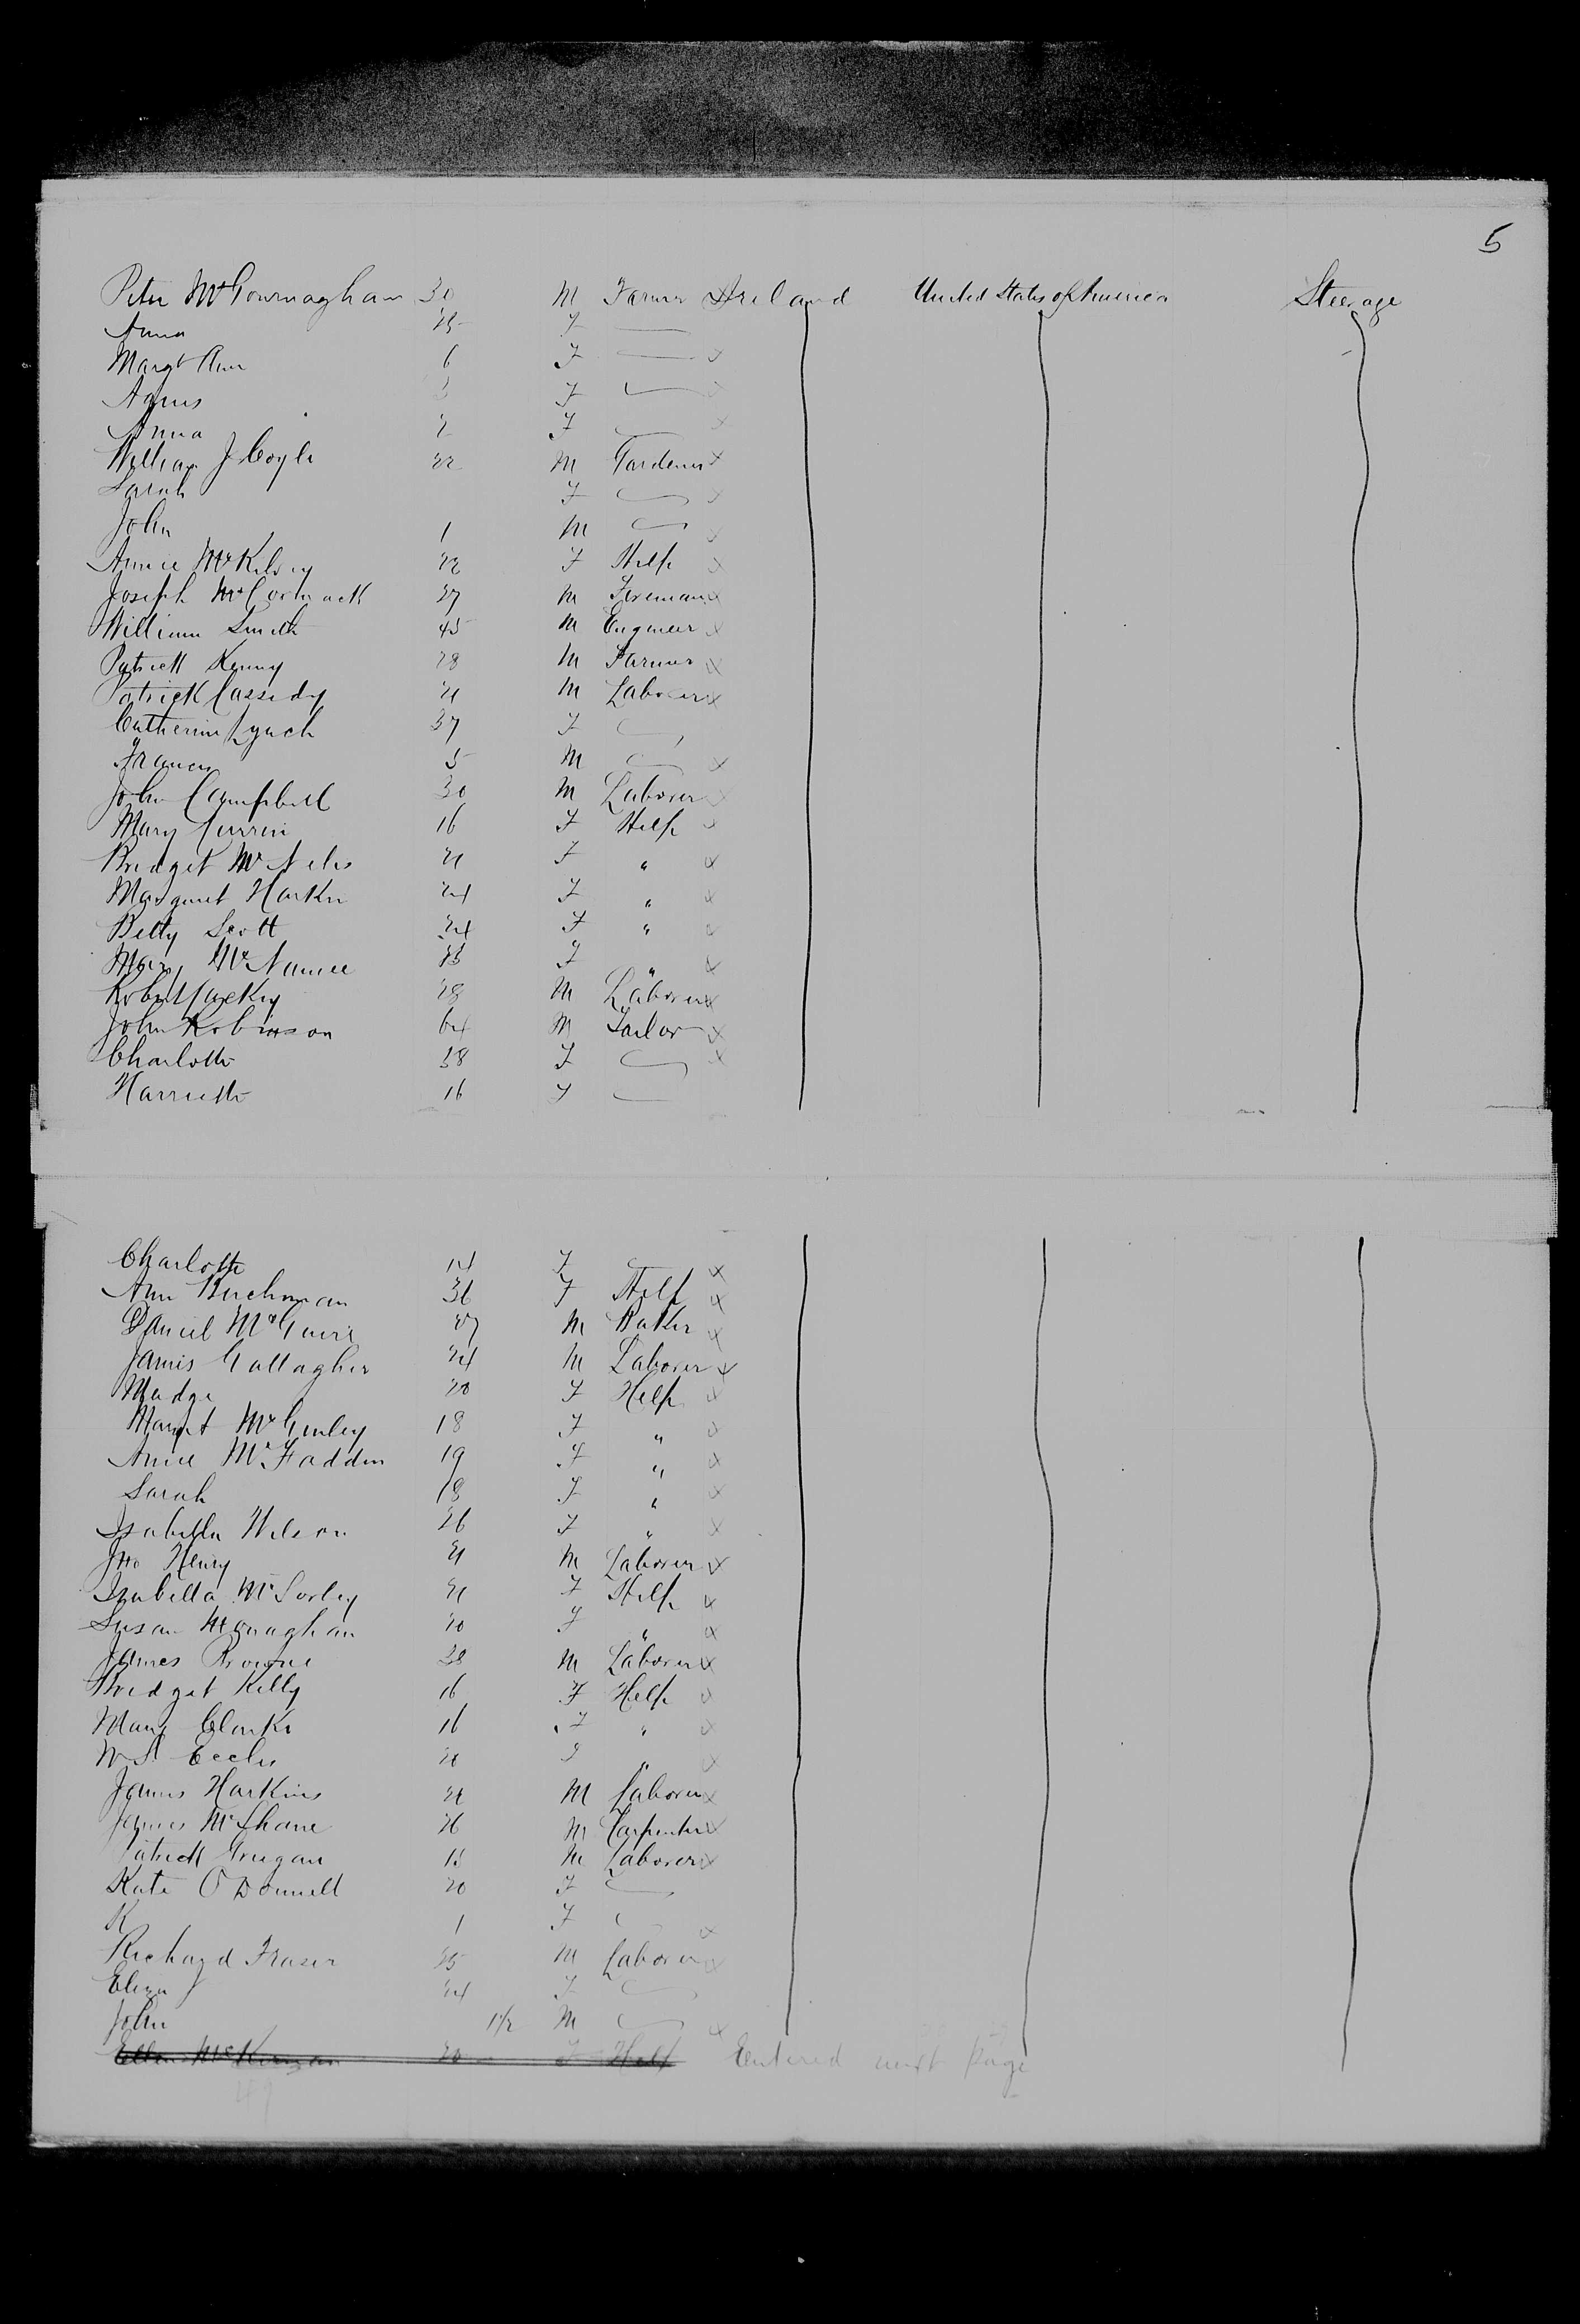 5
Peter McGownaghan 30 M Farmer Ireland United States of America Steerage
Anna 25 F
Margt Ann 6 F
Agnes 3 F
Anna 2 F
William J Coyle 22 M Gardener
Sarah F
John 1 M
Annie McKelvey 22 F Help
Joseph McCormack 27 M Fireman
William Smith 45 M Engineer
Patrick Kenny 28 M Farmer
Patrick Cassidy 21 M Laborer
Catherine Lynch 37 F
Francis 5 M
John Campbell 30 M Laborer
Mary Currin 16 F Help
Bridget McNelis 21 F "
Margaret Harkin 24 F "
Betty Scott 24 F "
Mary McNamee F "
Robert Mackey 28 M Laborer
John Robinson 64 M Tailor
Charlotte 38 F
Harriette 16 F
Charlotte 14 F
Ann Buchman 36 F Help
Daniel McGuire 27 M Baker
James Gallagher 24 M Laborer
Madge 20 F Help
Margt McGinley 18 F "
Annie McFadden 19 F "
Sarah 18 F "
Isabella Wilson 26 F "
Jno Henry 21 M Laborer
Isabella McSorley 21 F Help
Susan Monaghan 20 F "
James Browne 38 M Laborer
Bridget Kelly 16 F Help
Mary Clarke 16 F "
Eccles F "
James Harkins 21 M Laborer
James McShane 26 M Carpenter
Patrick Grugan 15 M Laborer
Kate O'Donnell 20 F
K 1 F
Richard Fraser 25 M Laborer
Eliza 24 F
John 1 1/2 M
Ellen McKiernan 20 F Help Entered next page
49